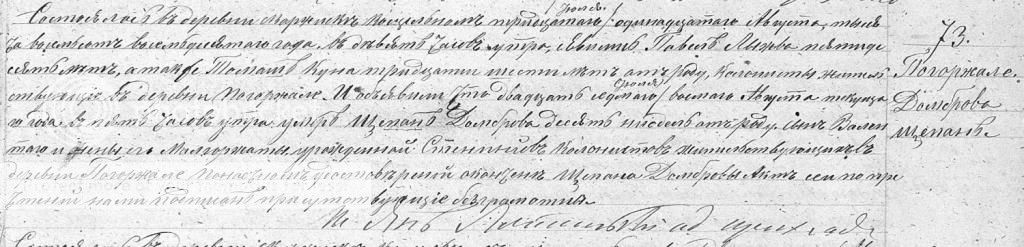 Іюля
Состоялось въ деревни Маржиска Косцельномъ тридцатаго / одинадцатаго Августа, тыся
ча восемьсотъ восемьдесятаго года въ девять часовъ утра, Явились, Павелъ пятиде
сять лѣтъ, а также Томашъ Куна тридцати шести лѣтъ отъ роду, Колонисты житель
ствующіе въ деревни Погоржале. И объявили что двадцать седмаго Іюля / восмаго Августа текуща
го года въ пять часовъ утра умеръ Щепанъ Домброва десять недѣль отъ роду, сынъ Вален
таго и жены его Малгоржаты, урожденной Колонистовъ жительствующихъ въ
деревни Погоржале. По настоящемъ удостовѣреніи о кончинѣ Щепана Домбровы Актъ сей по про
чтеніи нами подписанъ присутствующіе безграмотны.
Кс Янъ
73.
Погоржале.
Домброва
Щепанъ.
Состоялось въ деревни